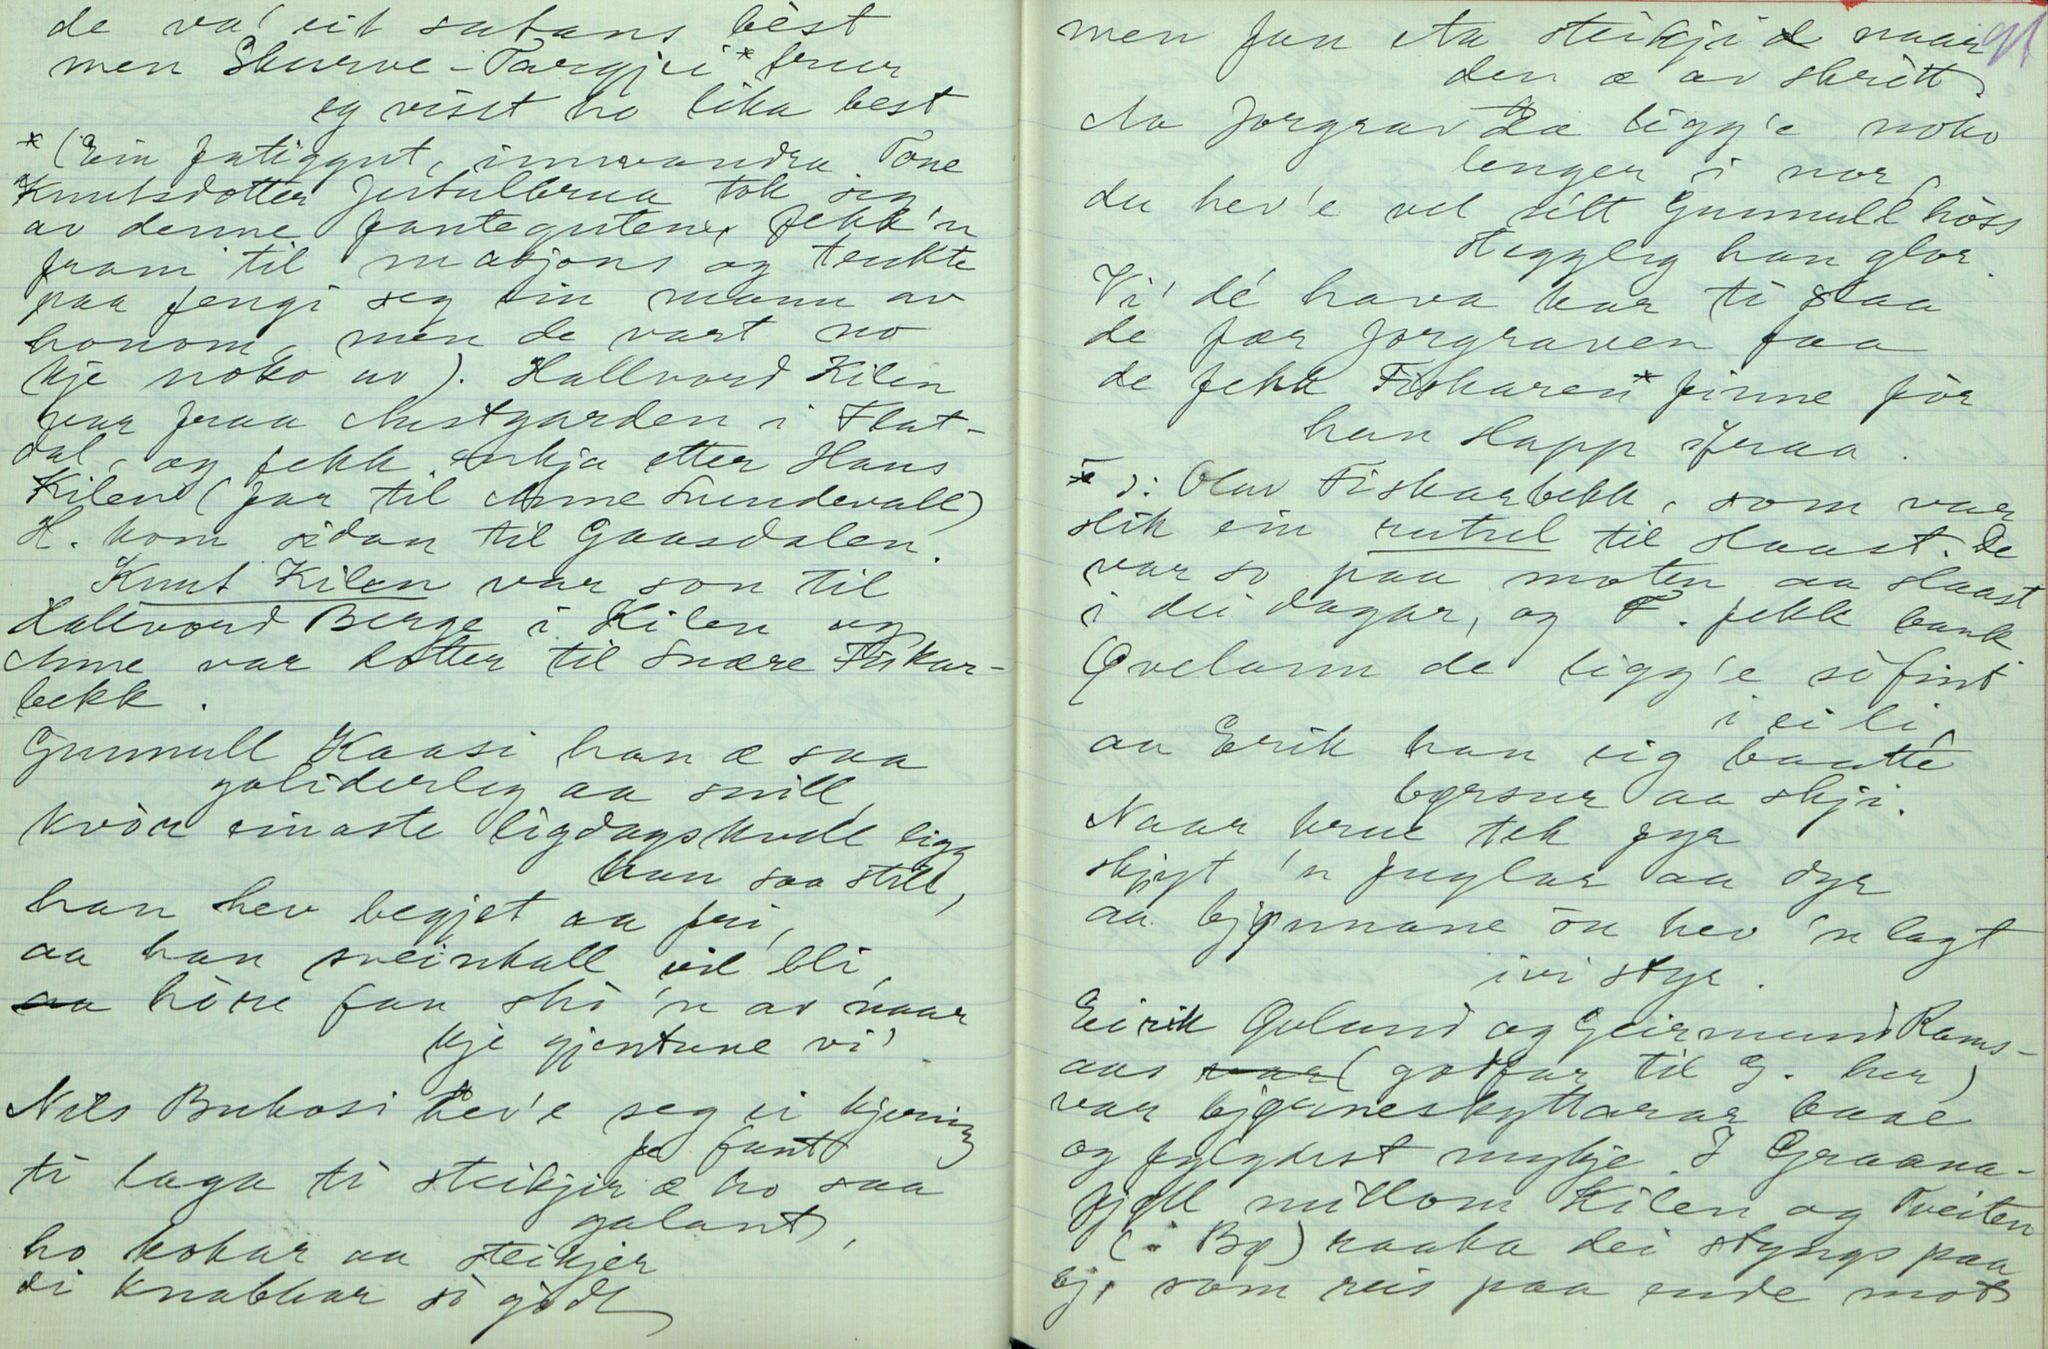 de va' eit satans bèst
men Skurve-Targjei* trur
eg visst ho lika best
* (Ein fatiggut, innvandra. Tone
Knutsdotter Jutulbrua tok seg
av denne fanteguten, fekk'n
fram til          og tenkte
paa fengi seg ein mann av
honom, men de vart no
kje noko av). Hallvord Kilen
var fraa Austgarden i Flat-
dal, og fekk enkja etter Hans
Kilen (far til Anne Sundevall)
H. kom sidan til Gaasdalen.
Knut Kilen var son til
Hallvord Berge i Kilen og
Anne var dotter til Snære Fiskar-
bekk.
Gunnull Kaasi han æ saa
goliderleg aa snill,
kvòr einaste laugdagskvell ligg
han saa still,
han hev begjet aa fri,
aa han sveinkall vil bli,
aa hòre fan ska 'n av naar
kje gjentune vi'.
Nils Bukasi hev'e seg ei kjering
fant
ti laga ti steikjer æ ho saa
galant,
ho kokar aa steikjer
di knabbar so godt
men fan ska steikji d naar
den æ av skritt.
Aa Jorgrav Da ligg'e noko
lenger i nor,
du hev'e vel sitt Gunnull hòss
steggleg han glor.
Vi' dé hava kar ti slaa
de fær Jorgraven faa
de fekk Fiskaren* finne fòr
han slapp ifraa.
* ɔ: Olav Fiskarbekk, som var
slik ein rutsel til slaast. De
var so paa moten aa slaast
i dei dagar, og F. fekk bank.
Øvelann de ligg'e so fint
i ei li,
aa Erik han eig baatte
børsur aa skji.
Naar krut tek fyr
skjyt 'n fuglar aa dyr
aa bjønnane òn hev 'n lagt
ivi styr.
Eirik Øvland og Geirmund Rams-
aas var (godfar til G. her)
var bjørneskyttarar baae
og fylgdest mykje. I Graana-
fjøll millom Kilen og Tveiten
(i Bø) raaka dei styngs paa
bj. som reis paa ende mot